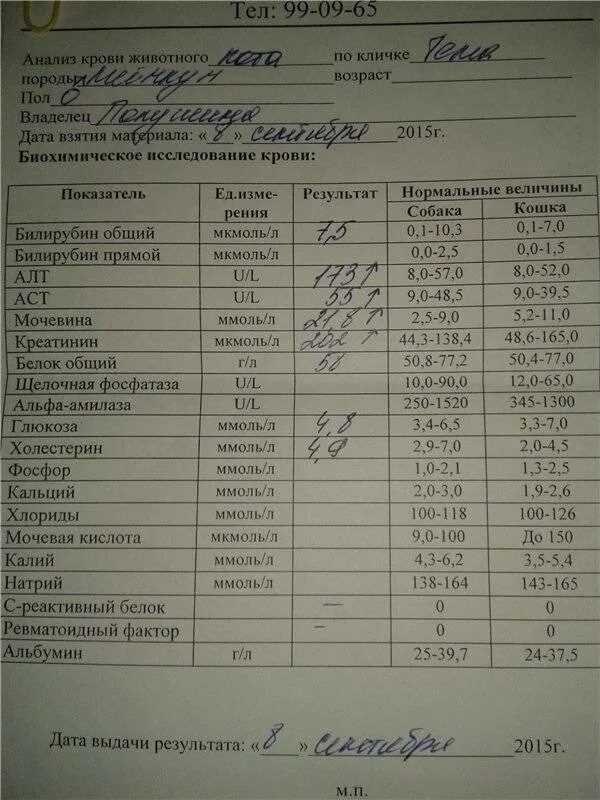 Тел: 99-09-65
Анализ крови животного кота по кличке Тема
породы Мейнкун возраст
Пол
Владелец
Дата взятия материала: «8» сентября 2015г.
Биохимическое исследование крови:
Показатель Ед.изме-рения Результат Нормальные величины
Собака Кошка
Билирубин общий мкмоль/л 7,5 0,1-10,3 0,1-7,0
Билирубин прямой мкмоль/л 0,0-2,5 0,0-1,5
АЛТ U/L 173↑ 8,0-57,0 8,0-52,0
АСТ U/L 55↑ 9,0-48,5 9,0-39,5
Мочевина ммоль/л 21,8↑ 2,5-9,0 5,2-11,0
Креатинин мкмоль/л 202↑ 44,3-138,4 48,6-165,0
Белок общий г/л 58 50,8-77,2 50,4-77,0
Щелочная фосфатаза U/L 10,0-90,0 12,0-65,0
Альфа-амилаза U/L 250-1520 345-1300
Глюкоза ммоль/л 4,8 3,4-6,5 3,3-7,0
Холестерин ммоль/л 4,9 2,9-7,0 2,0-4,5
Фосфор ммоль/л 1,0-2,1 1,3-2,5
Кальций ммоль/л 2,0-3,0 1,9-2,6
Хлориды ммоль/л 100-118 100-126
Мочевая кислота мкмоль/л 9,0-100 До 150
Калий ммоль/л 4,3-6,2 3,5-5,4
Натрий ммоль/л 138-164 143-165
С-реактивный белок — 0 0
Ревматоидный фактор – 0 0
Альбумин г/л 25-39,7 24-37,5
Дата выдачи результата: «8» сентября 2015г.
м.п.